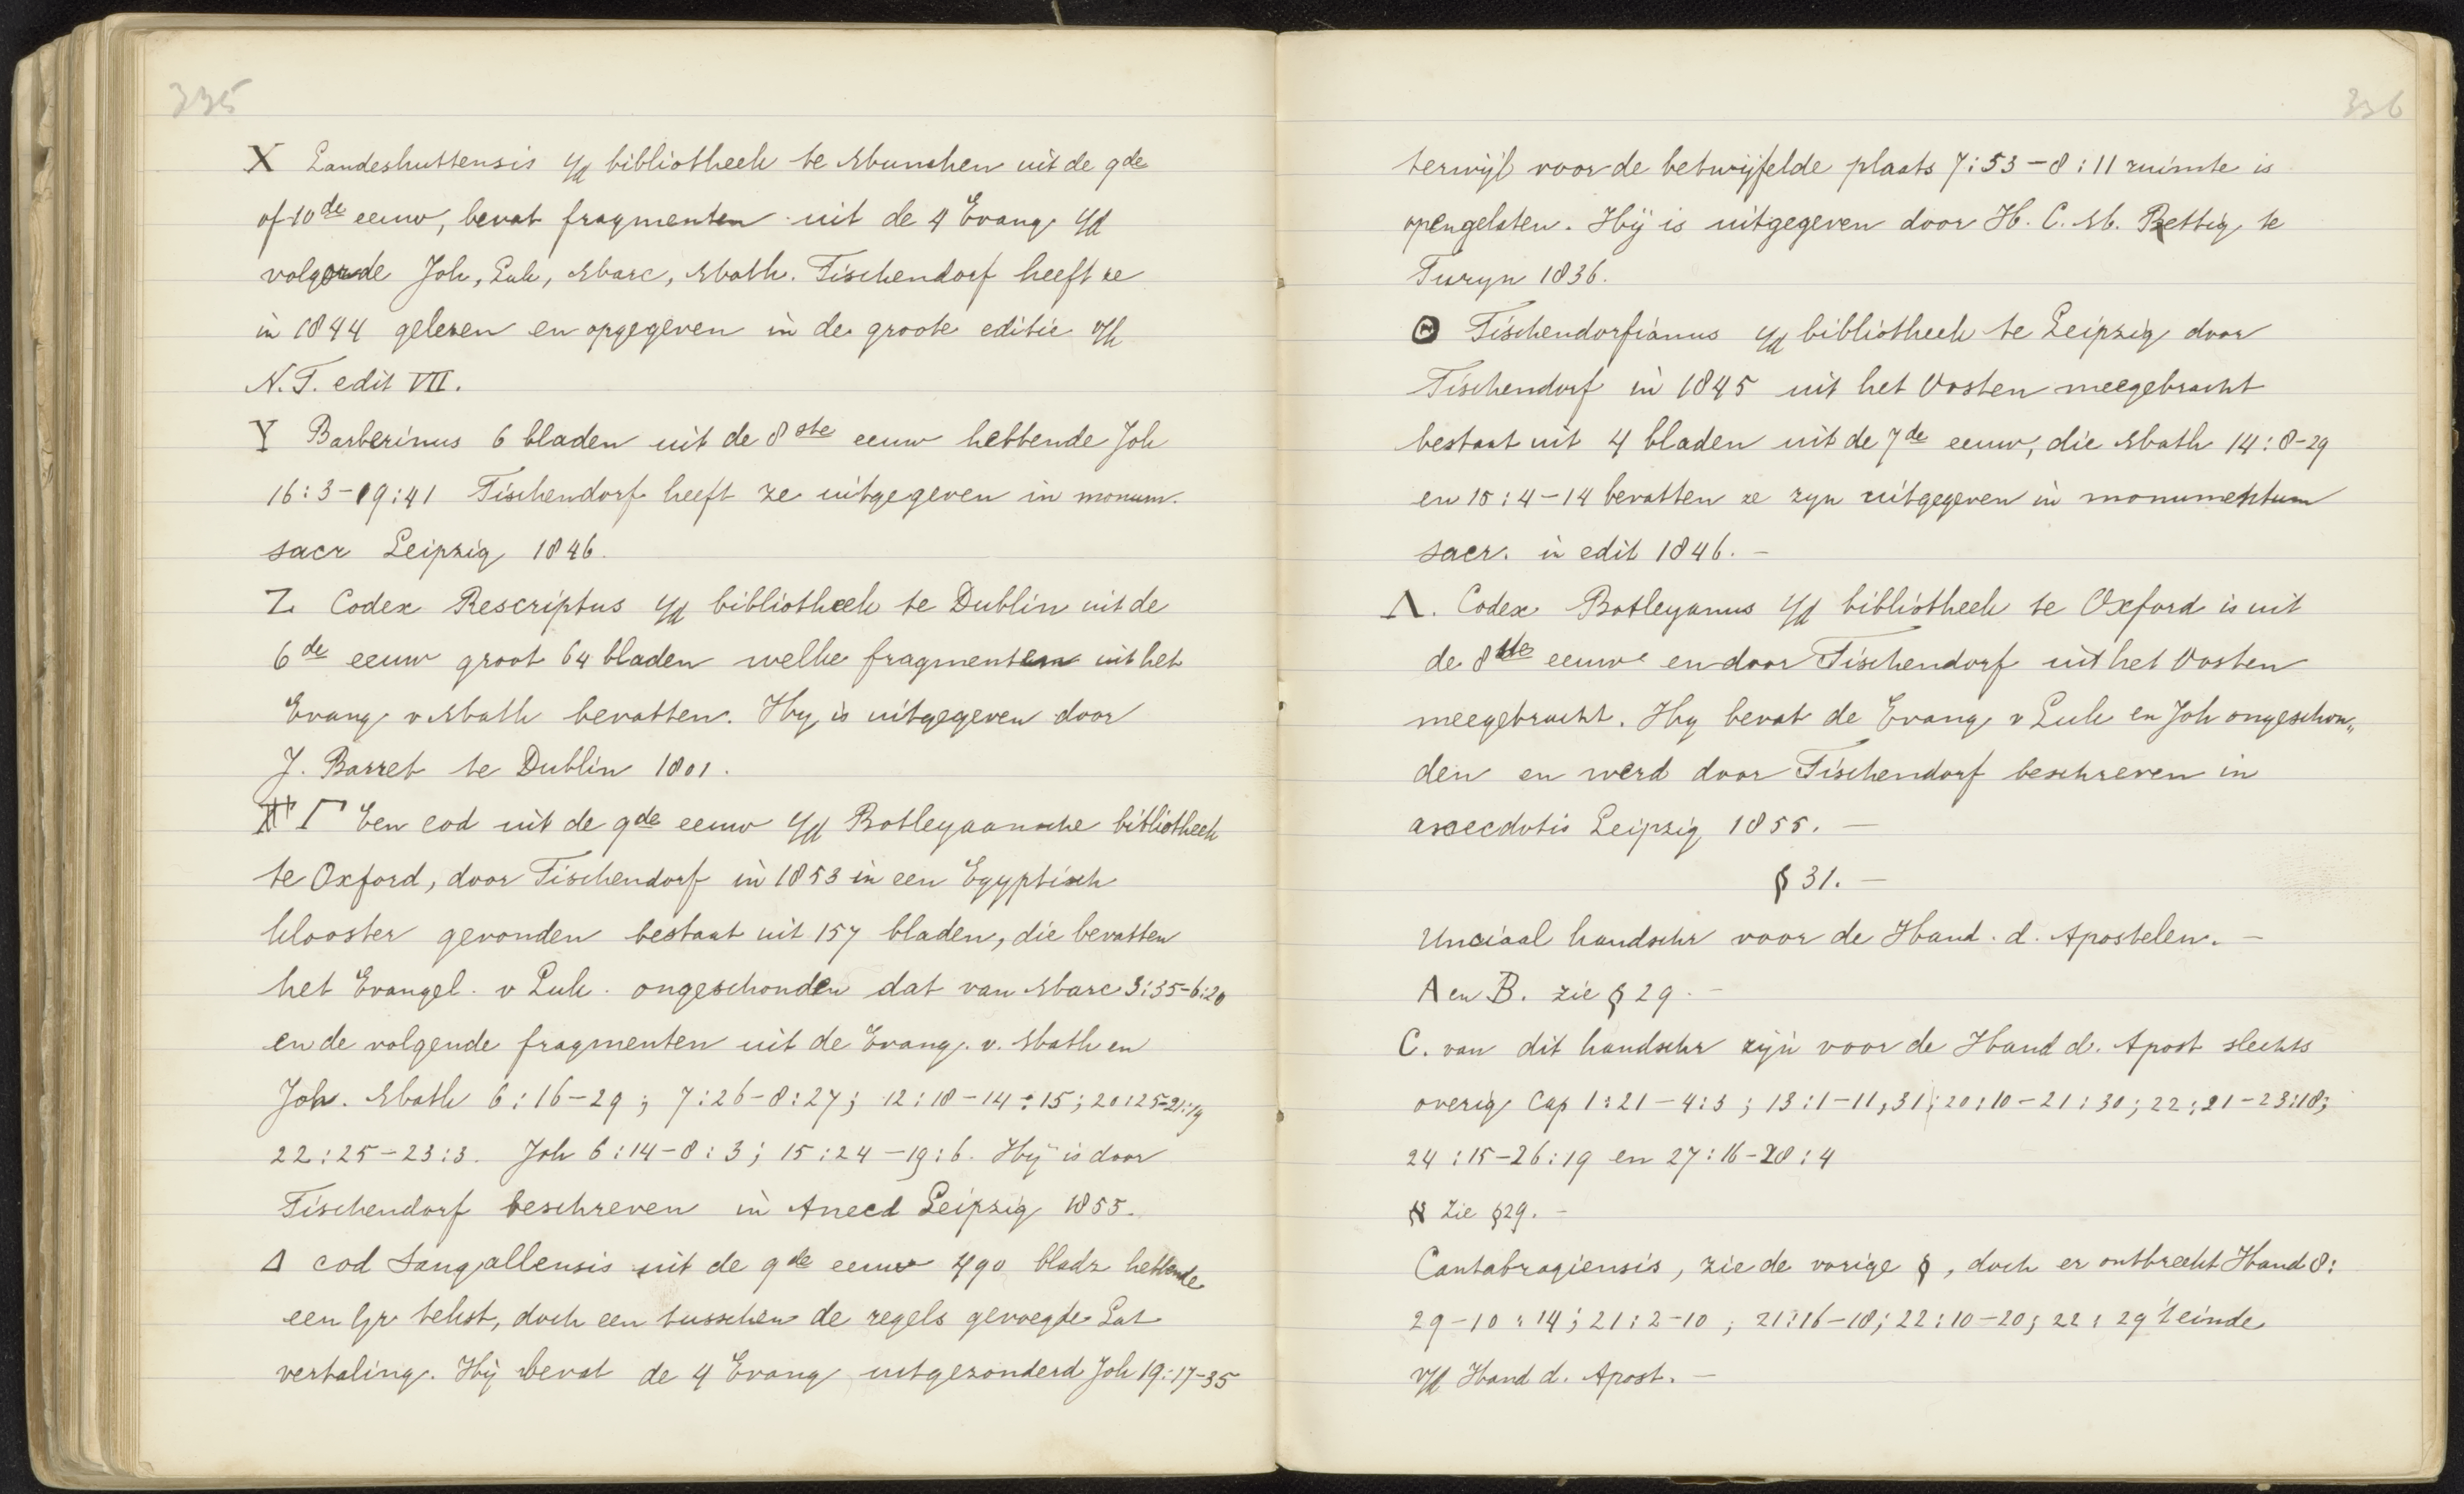 335
X Landeshuttensis i/d bibliotheek te Munchen uit de 9de
of 10de eeuw, bevat fragmenten uit de 4 Evang i/d
volgorde Joh, Luk, Marc, Math. Tischendorf heeft ze
in 1844 gelezen en opgegeven in de groote editie v/h
N.T. edit VII.
Y Barberinus 6 bladen uit de 8ste eeuw hebbende Joh
16:3-19:41 Tischendorf heeft ze uitgegeven in monum.
sacr Leipzig 1846.
Z Codex Rescriptus i/d bibliotheek te Dublin uit de
6de eeuw groot 64 bladen welke fragmenten uit het
Evang v Math bevatten. Hy is uitgegeven door
J. Barret te Dublin 1801.
Γ Een cod uit de 9de eeuw i/d Botleyaansche bibliotheek
te Oxford, door Tischendorf in 1853 in een Egyptisch
klooster gevonden bestaat uit 157 bladen, die bevatten
het Evangel. v Luk. ongeschonden dat van Marc 3:35-6:20
en de volgende fragmenten uit de Evang. v. Math en
Joh. Math 6:16-29; 7:26-8:27; 12:18-14:15; 20:25-21:19
22:25-23:3. Joh 6:14-8:3; 15:24-19:6. Hij is door
Tischendorf beschreven in Anecd Leipzig 1855.
Δ cod Sangallensis uit de 9de eeuw 490 bladz hebbende
een Gr tekst, doch een tusschen de regels gevoegde Lat
vertaling. Hij bevat de 4 Evang uitgezonderd Joh 19:17-35
336
terwijl voor de betwijfelde plaats 7:53-8:11 ruimte is
opengelaten. Hij is uitgegeven door H. C. M. Rettig te
Turyn 1836.
Θ Tischendorfianus i/d bibliotheek te Leipzig door
Tischendorf in 1845 uit het Oosten meegebracht
bestaat uit 4 bladen uit de 7de eeuw, die Math 14:8-29
en 15:4-14 bevatten ze zyn uitgegeven in monumentum
sacr. in edit 1846. -
Λ. Codex Botleyanus i/d bibliotheek te Oxford is uit
de 8ste eeuw en door Tischendorf uit het Oosten
meegebracht. Hy bevat de Evang v Luk en Joh ongeschon„
den en werd door Tischendorf beschreven in
anecdotis Leipzig 1855. -
§ 31. -
Unciaal handschr voor de Hand. d. Apostelen. -
A en B. zie § 29. -
C. van dit handschr zijn voor de Hand d. Apost slechts
overig Cap 1:21-4:3; 13:1-11,31; 20:10-21:30; 22:21-23:18;
24:15-26:19 en 27:16-28:4
א Zie §29. -
Cantabragiensis, zie de vorige §, doch er ontbreekt Hand 8:
29-10:14; 21:2-10; 21:16-18; 22:10-20; 22:29 't einde
v/d Hand d. Apost. -